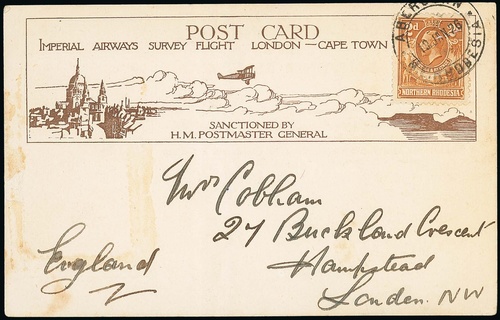 POST CARD
IMPERIAL AIRWAYS SURVEY FLIGHT LONDON — CAPE TOWN
NORTHERN RHODESIA
SANCTIONED BY
H.M. POSTMASTER GENERAL
Mrs Cobham
27 Buckland Crescent
Hampstead
London. NW
England